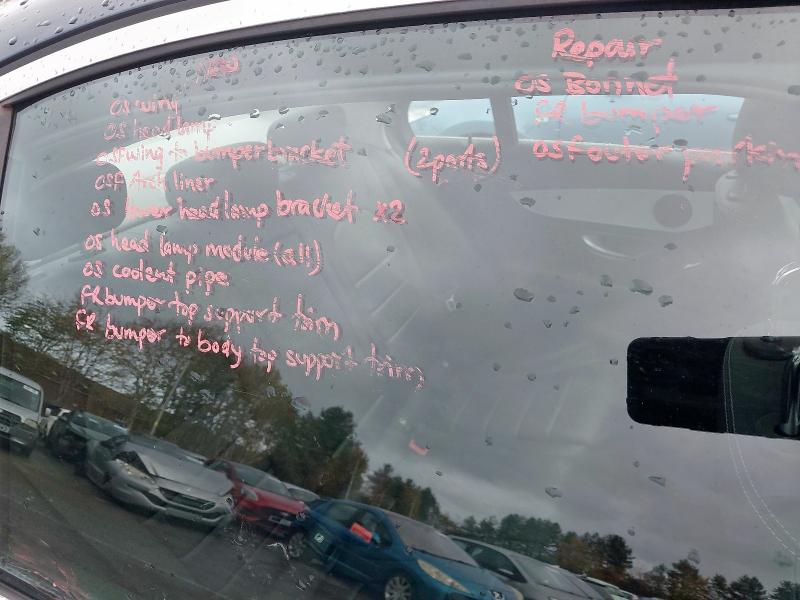 Repair
os wing
os Bonnet
os head lamp
FR bumper
osf wing to bumper bracket (2parts)
osf outer
osf Arch liner
os lower head lamp bracket x2
os head lamp module (all)
os coolent pipe
FR bumper top support trim
FR bumper to body top support trim